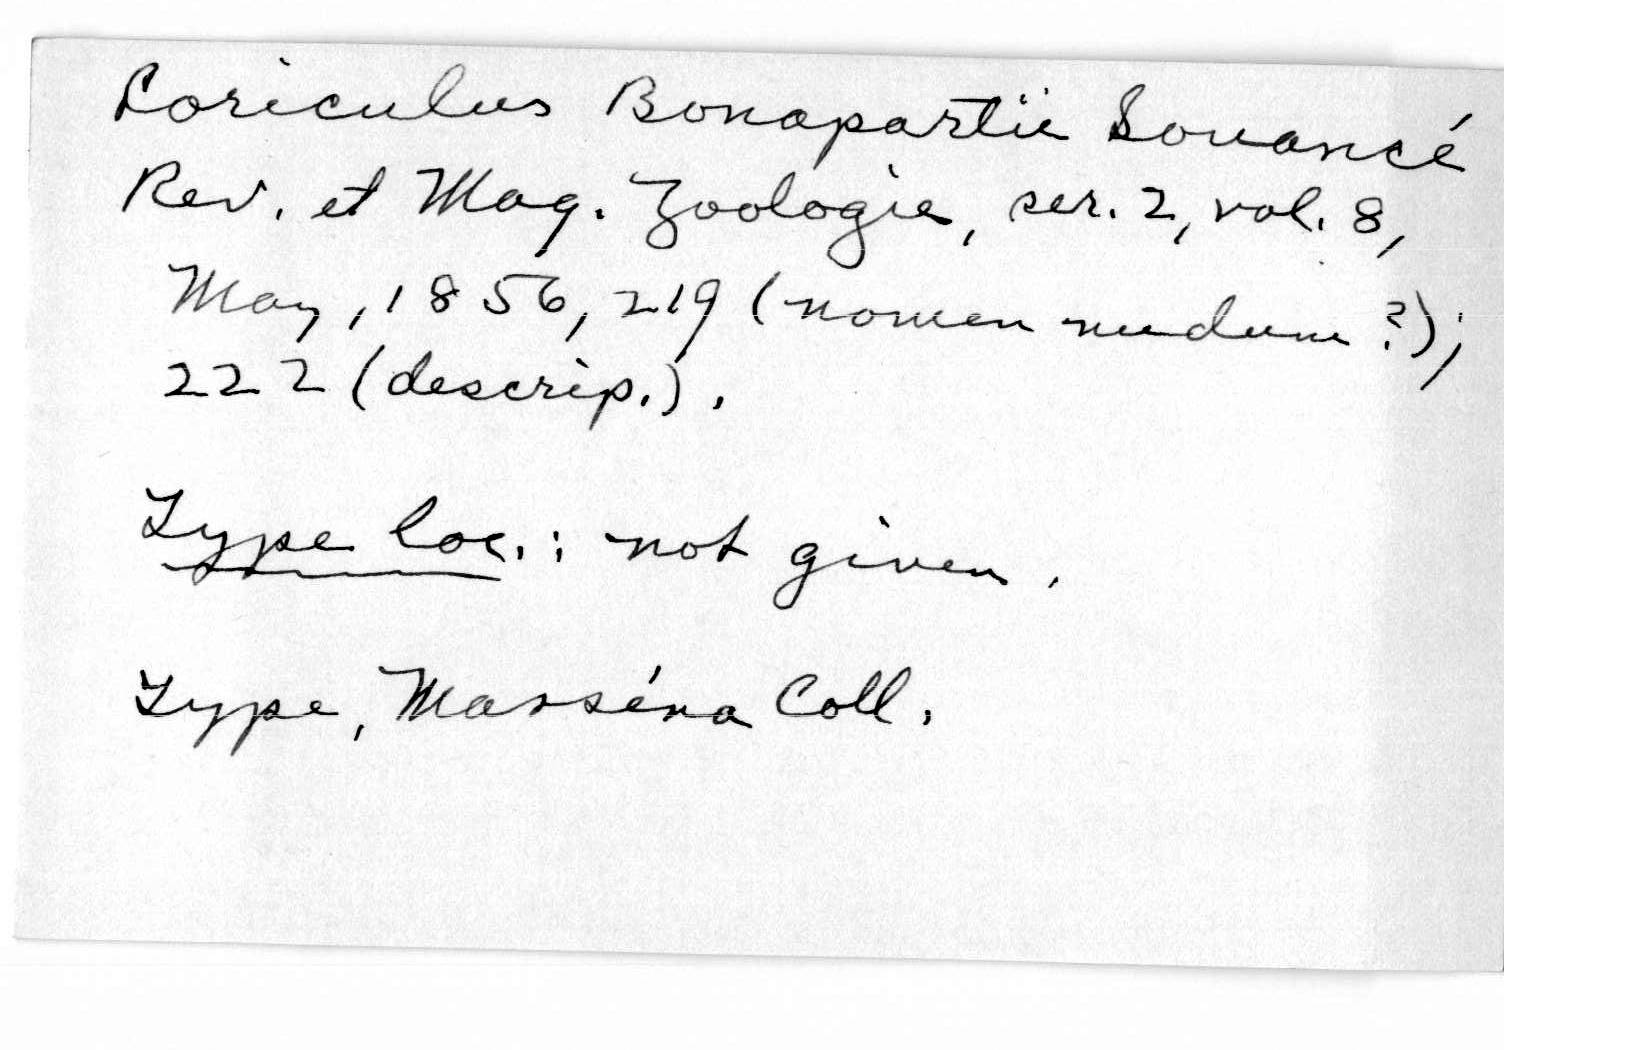 Loriculus Bonapartii Souancé
Rev. et Mag. Zoologie, ser. 2, vol. 8,
May, 1856, 219 (nomen nudum?);
222 (descrip.).
Type loc.: not given.
Type, Masséna Coll.